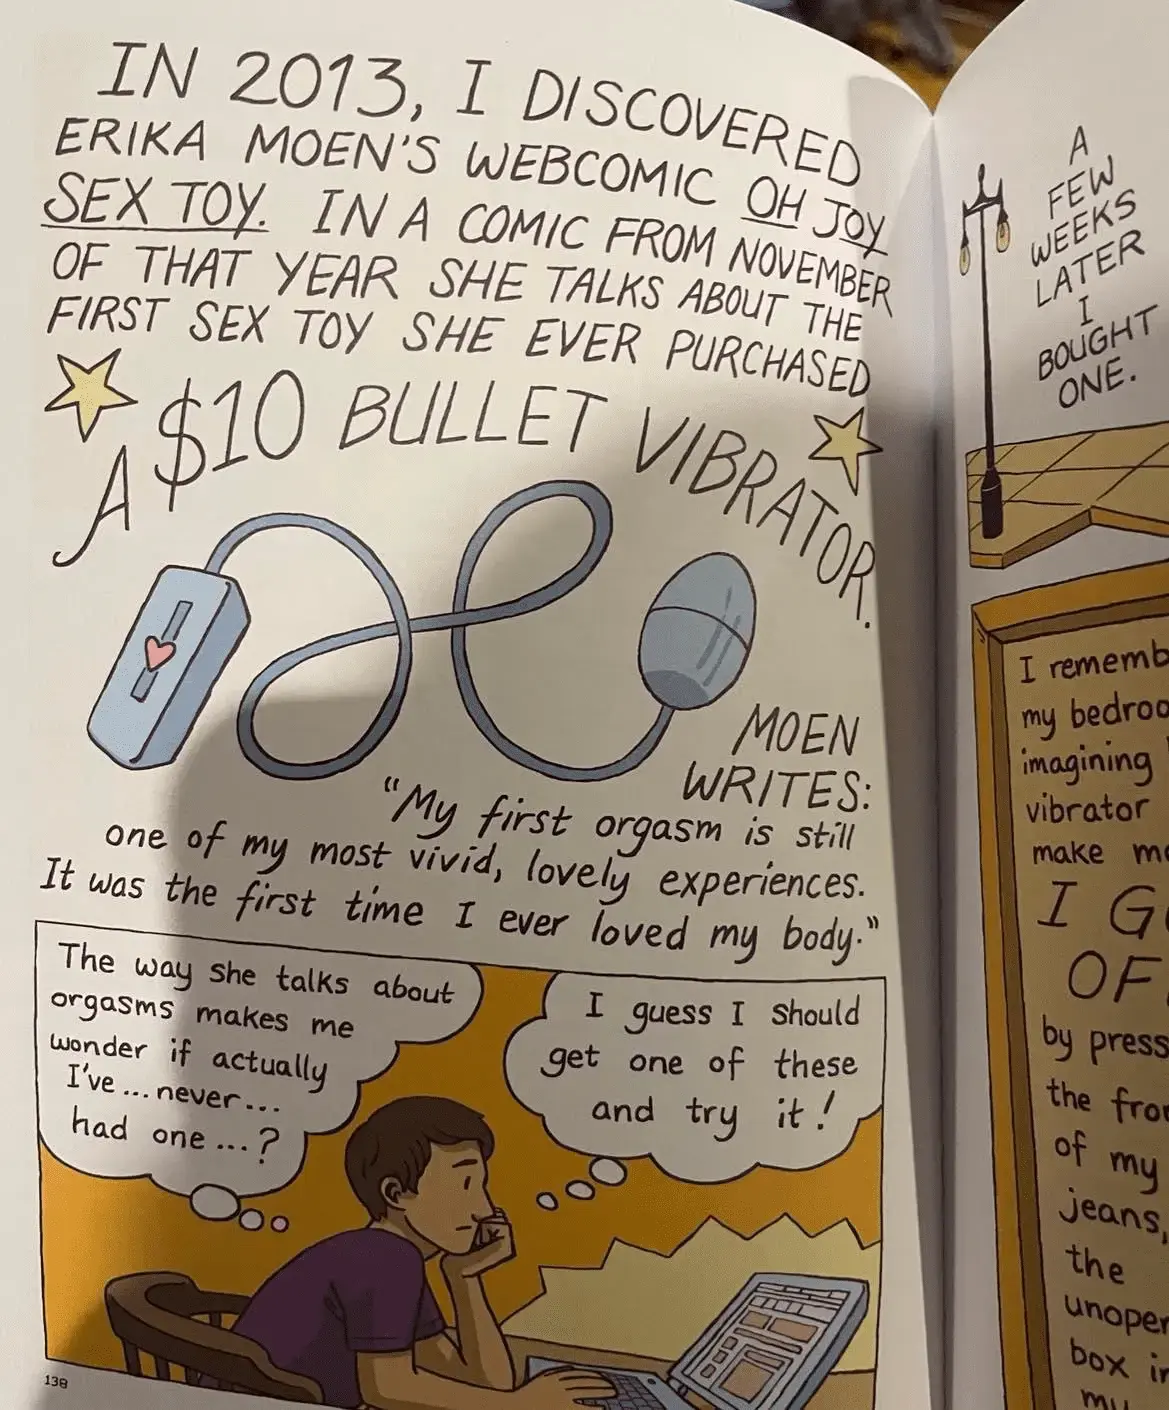 IN 2013, I DISCOVERED
ERIKA MOEN'S WEBCOMIC OH JOY
SEX TOY. IN A COMIC FROM NOVEMBER
OF THAT YEAR SHE TALKS ABOUT THE
FIRST SEX TOY SHE EVER PURCHASED
A $10 BULLET VIBRATOR.
MOEN
WRITES:
"My first orgasm is still
one of my most vivid, lovely experiences.
It was the first time I ever loved my body."
The way she talks about
orgasms makes me
wonder if actually
I've...never...
had one...?
I guess I should
get one of these
and try it!
138
A
FEW
WEEKS
LATER
I
BOUGHT
ONE.
I
my
imagining
vibrator
make
I
OF
by
the
of my
jeans,
the
box